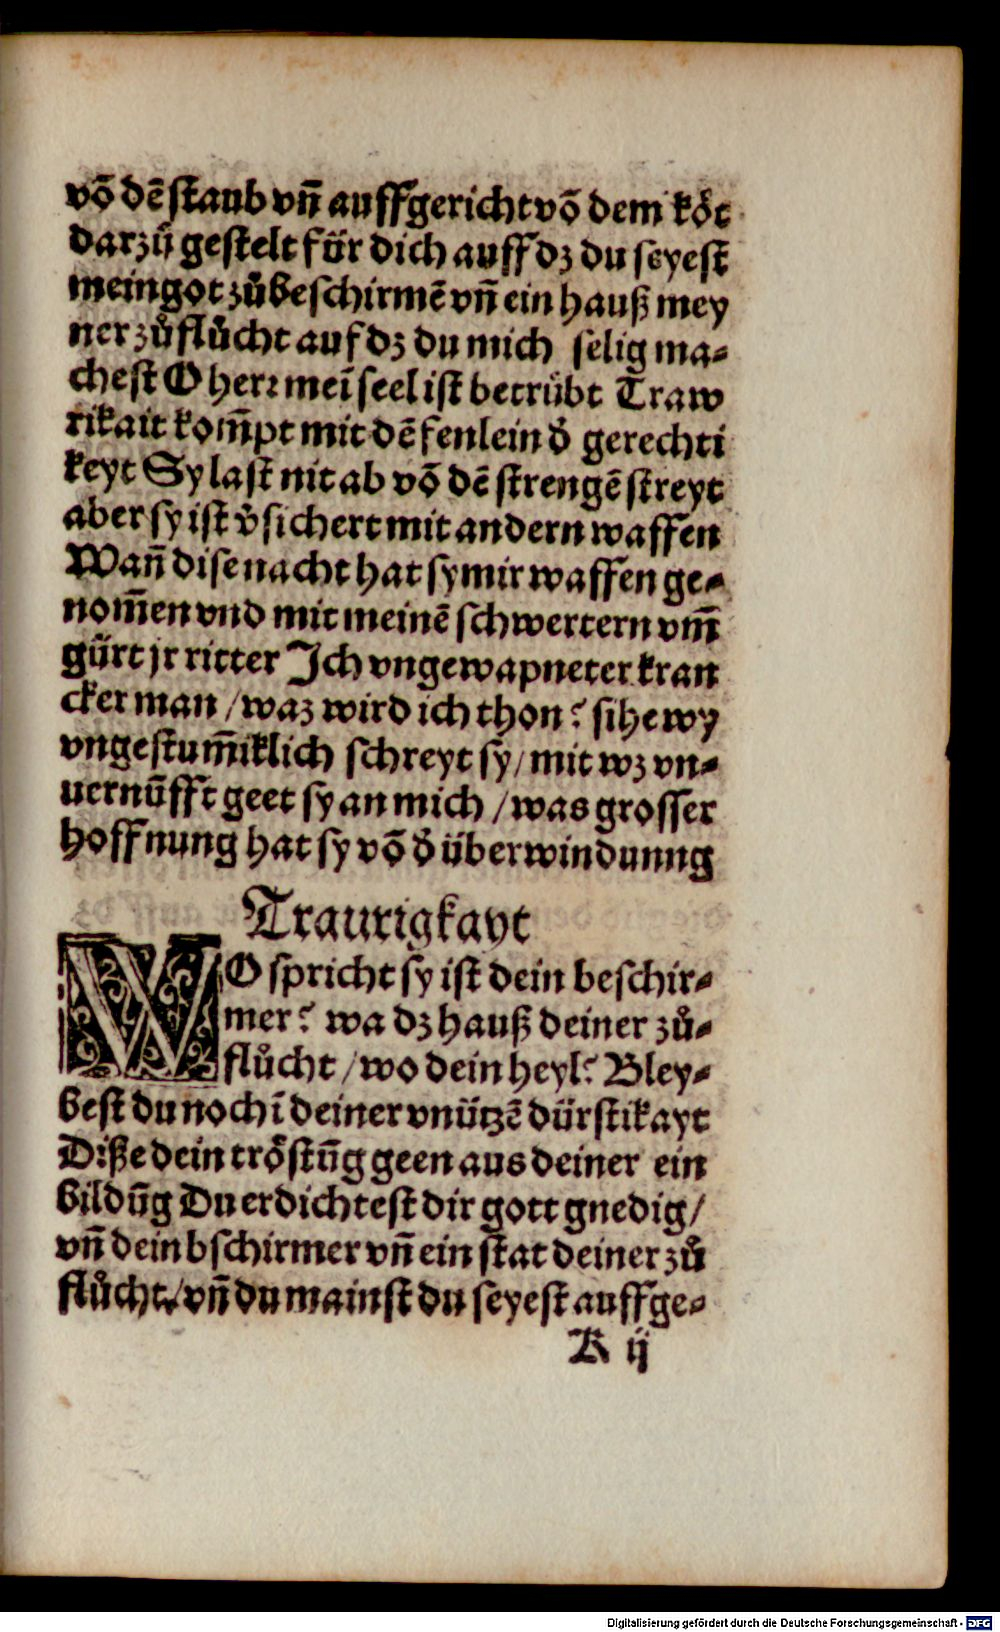 võ dē staub vñ auffgericht võ dem kǒt
darzů gestelt für dich auff dz du seyest
mein got zůbeschirmē vñ ein hauß mey
ner zůflůcht auf dz du mich selig ma-
chest O herꝛ meī seel ist betrübt Traw
rikait kom̄pt mit dē fenlein d̄ gerechti
keyt Sy last nit ab võ dē strengē streyt
aber sy ist v̄sichert mit andern waffen
Wañ dise nacht hat sy mir waffen ge-
nom̄en vnd mit meinē schwertern vm̄
gürt jr ritter Ich vngewapneter kran
cker man / waz wird ich thon? sihe wy
vngestum̄iklich schreyt sy / mit wz vn-
uernūfft geet sy an mich / was grosser
hoffnung hat sy võ d̄ überwindunng
Traurigkayt
WO spricht sy ist dein beschir-
mer? wa dz hauß deiner zů-
flůcht / wo dein heyl? Bley-
best du noch ī deiner vnützē dürstikayt
Diße dein tröstūg geen aus deiner ein
bildūg Du erdichtest dir gott gnedig /
vñ dein bschirmer vñ ein stat deiner zů
flůcht / vñ du mainst du seyest auffge-
K ij
Digitalisierung gefördert durch die Deutsche Forschungsgemeinschaft - DFG